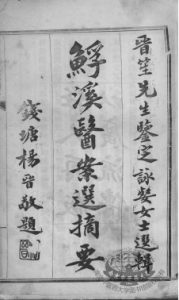 晉笙先生鑒定詠媐女士選輯
鱘溪醫案選摘要
錢塘楊晉敬題